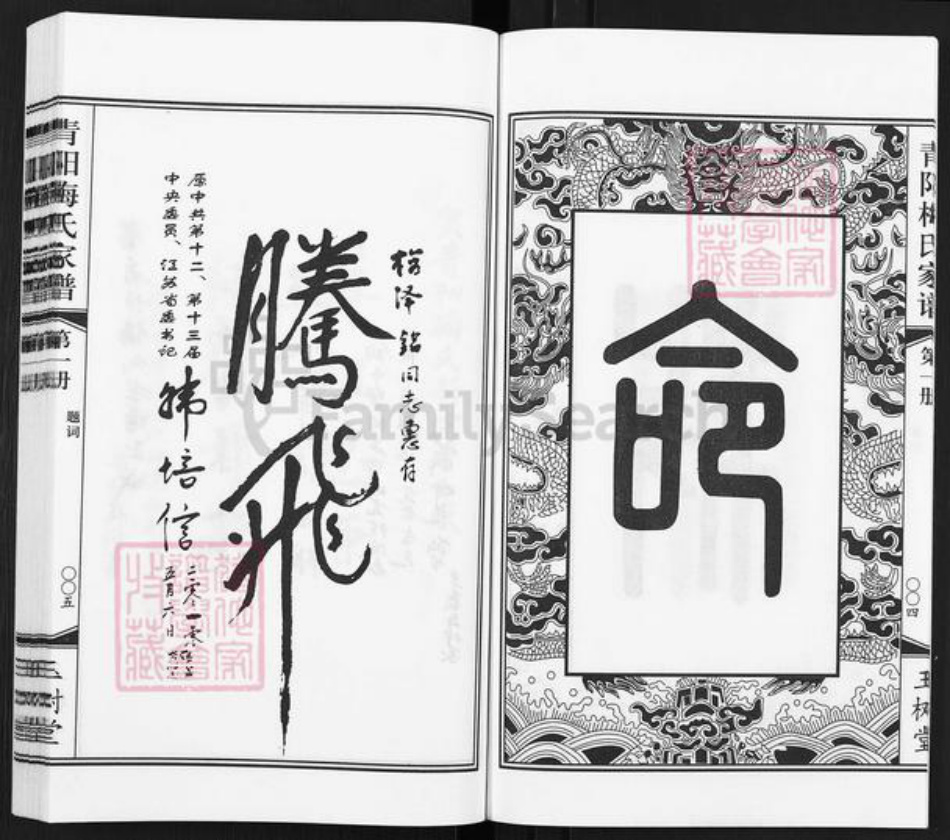 命
青阳梅氏家谱
第一册
〇〇四
玉树堂
梅泽铭同志惠存
腾飛
原中共第十二、第十三届
中央委员、江苏省委书记
韩培信
二零一零年
五月六日
青阳梅氏家谱
第一册
题词
〇〇五
玉树堂
FamilySearch